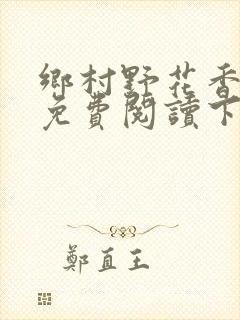 鄉村野花香
免費閱讀下
鄭直王